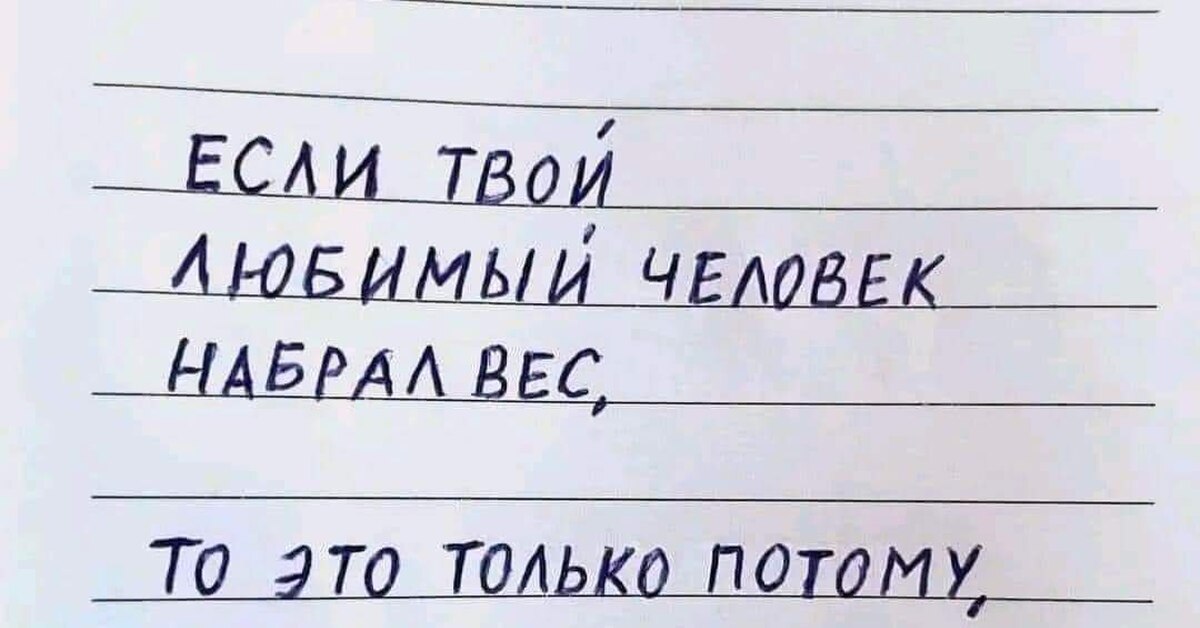 ЕСЛИ ТВОЙ
ЛЮБИМЫЙ ЧЕЛОВЕК
НАБРАЛ ВЕС,
ТО ЭТО ТОЛЬКО ПОТОМУ,